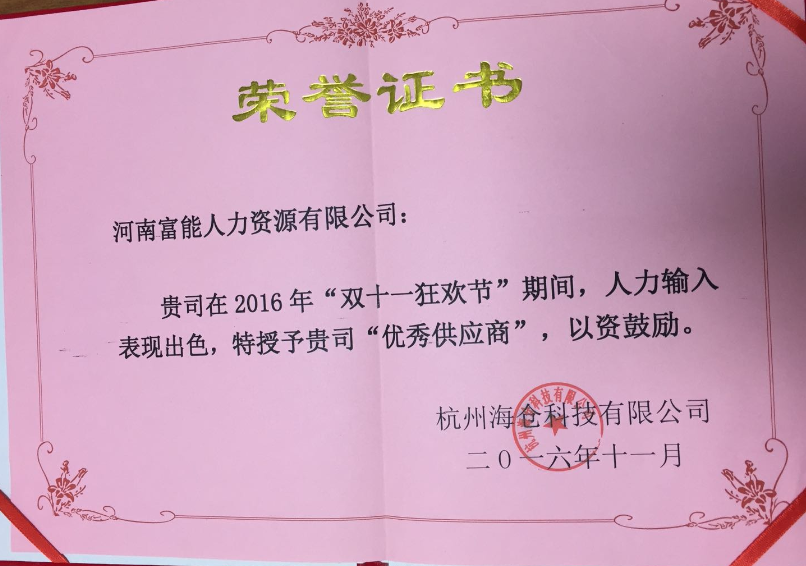 荣誉证书
河南富能人力资源有限公司：
贵司在2016年“双十一狂欢节”期间，人力输入
表现出色，特授予贵司“优秀供应商”，以资鼓励。
杭州海仓科技有限公司
二0一六年十一月